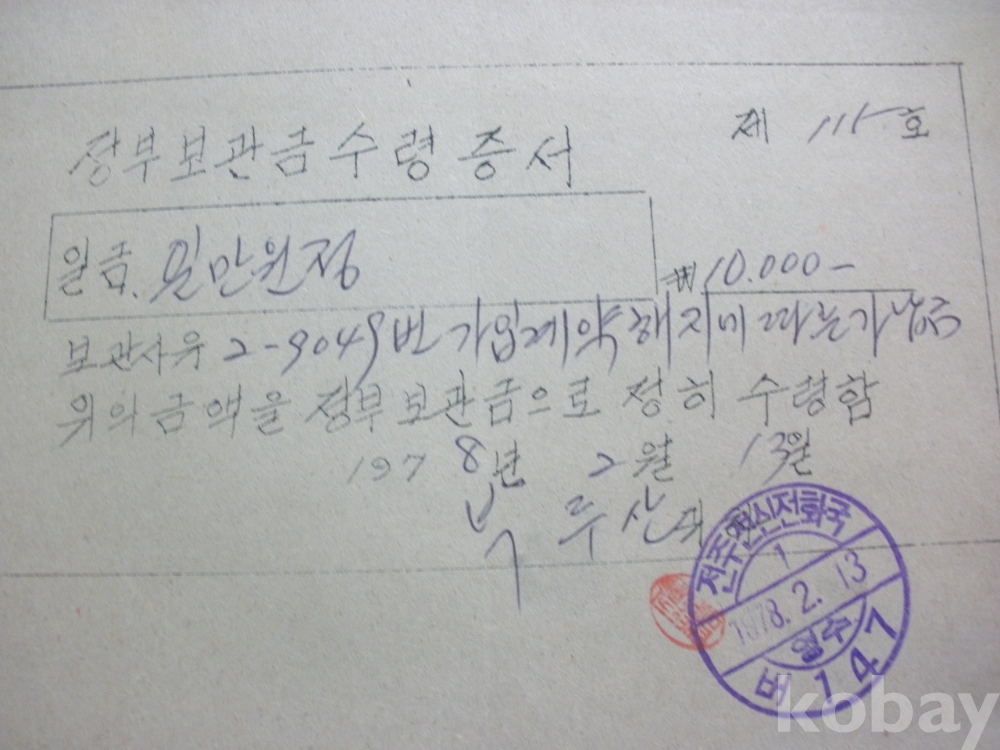 제 115호
정부보관금수령증서
일금. 일만원정
₩10.000-
보관사유 2-9049번 가입계약해지에따른가납금
위의금액을 정부보관금으로 정히 수령함
1978년 2월 13일
박 두 산 귀
전주전신전화국
1
1978.2.13
영수
버 147
kobay